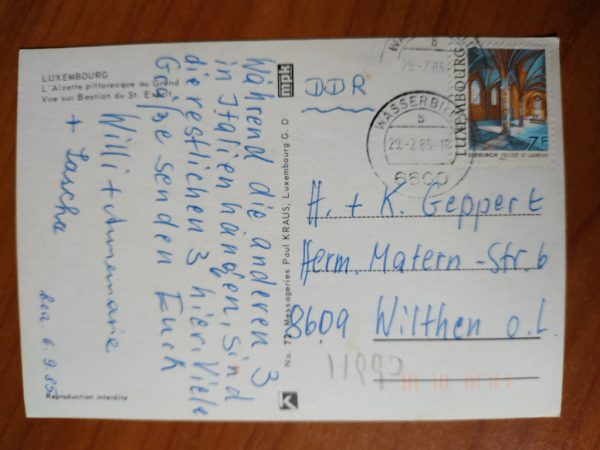 LUXEMBOURG
L'Alzette pittoresque au Grund
Vue sur Bastion du St. Esprit
Während die anderen 3
in Italien hängen, sind
die restlichen 3 hier. Viele
Grüße senden Euch
Willi + Annemarie
+ Sascha
6.9.85
Reproduction interdite
mpk
No. 72 Messageries Paul KRAUS, Luxembourg G. D
K
DDR
WASSERBILLIG
b
29.-7.85
WASSERBILLIG
b
29.-7.85-18
6600
LUXEMBOURG
7F
DIEKIRCH EGLISE ST LAURENT
H. + K. Geppert
Herm. Matern-Str. 6
8609 Wilthen o. L.